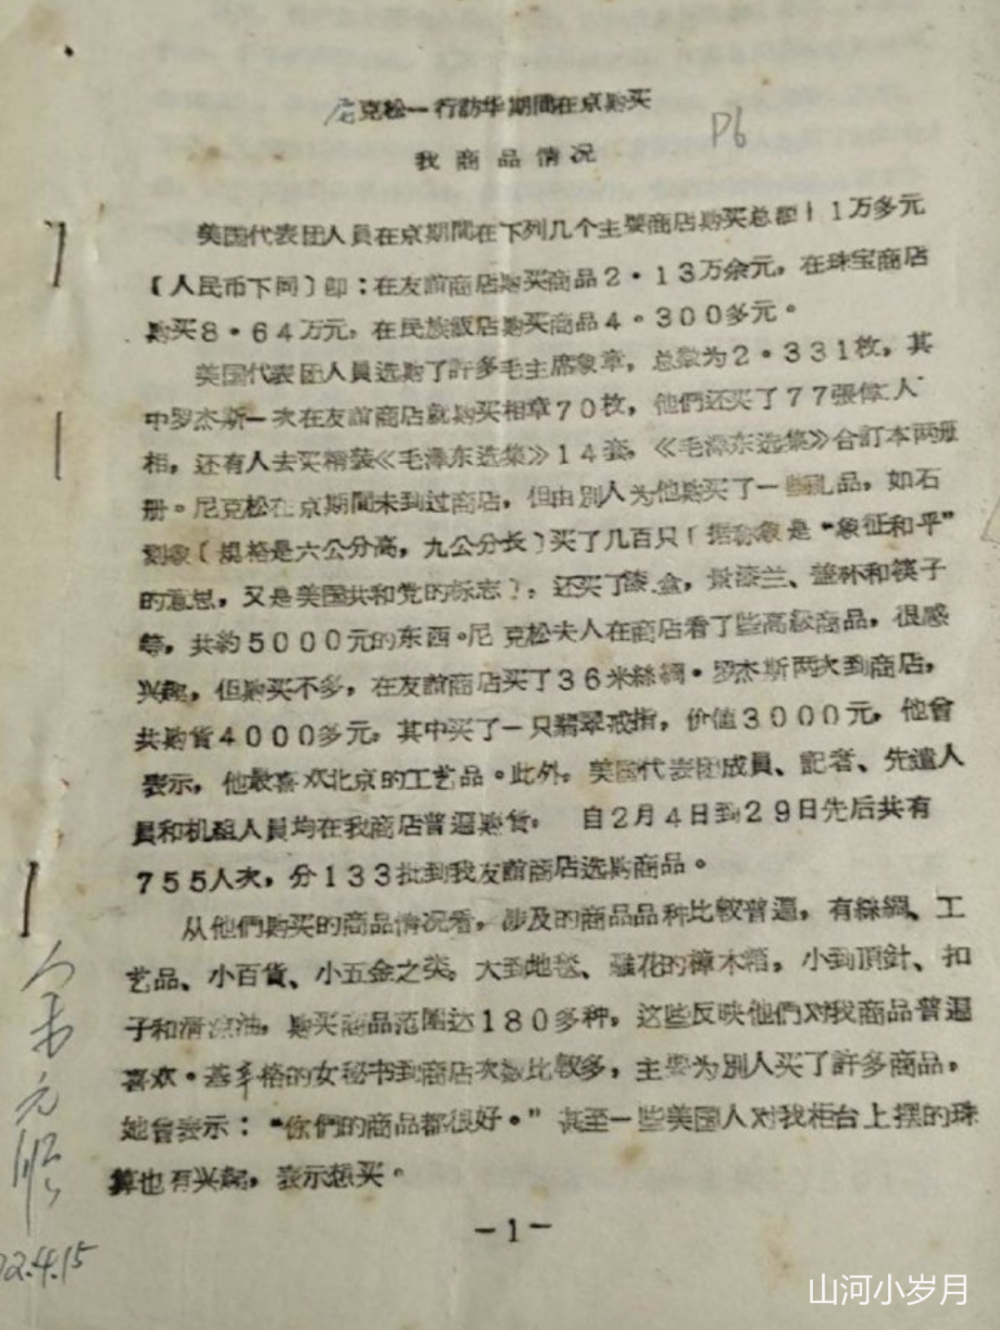 尼克松一行訪华期間在京购买
P6
我商品情况
美国代表团人員在京期間在下列几个主要商店购买总額11万多元
〔人民币下同〕即：在友誼商店购买商品2·13万余元，在珠宝商店
购买8·64万元，在民族飯店购买商品4·300多元。
美国代表团人員选购了許多毛主席象章，总数为2·331枚，其
中罗杰斯一次在友誼商店就购买相章70枚，他們还买了77張偉人
相，还有人去买精装《毛澤东选集》14套，《毛澤东选集》合訂本两册
册。尼克松在京期間未到过商店，但由別人为他购买了一些礼品，如石
刻象〔規格是六公分高，九公分长〕买了几百只〔据称象是“象征和平”
的意思，又是美国共和党的标志〕，还买了漆盒，景漆兰、盖杯和筷子
等，共約5000元的东西。尼克松夫人在商店看了些高級商品，很感
兴趣，但购买不多，在友誼商店买了36米絲綢·罗杰斯两次到商店，
共购貨4000多元，其中买了一只翡翠戒指，价值3000元，他曾
表示，他最喜欢北京的工艺品。此外，美国代表团成員、記者、先遣人
員和机組人員均在我商店普遍购貨， 自2月4日到29日先后共有
755人次，分133批到我友誼商店选购商品。
从他們购买的商品情况看，涉及的商品品种比較普遍，有絲綢、工
艺品、小百貨、小五金之类，大到地毯、雕花的樟木箱，小到頂針、扣
子和清涼油，购买商品范围达180多种，这些反映他們对我商品普遍
喜欢·基辛格的女秘书到商店次数比較多，主要为別人买了許多商品，
她曾表示：“你們的商品都很好。”甚至一些美国人对我柜台上摆的珠
算也有兴趣，表示想买。
—1—
72.4.15
山河小岁月